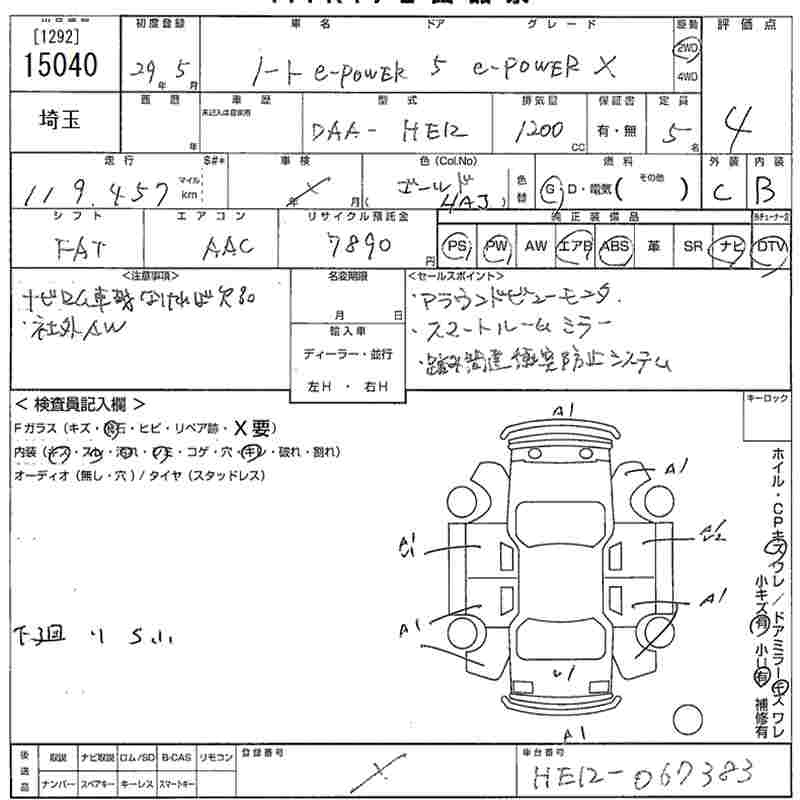 [1292]
15040
埼玉
初度登録
29年 5月
車名 ドア グレード
ノート e-POWER 5 e-POWER X
駆動
2WD
4WD
評価点
4
画歴
年
車歴
未記入は自家用
型式
DAA- HE12
排気量
1200 CC
保証書
有・無
定員
5名
走行 S#*
119.457 マイル km
車検
年 月
色(Col.No)
ゴールド
HAJ
色替
燃料
G D・電気( その他 )
外装
C
内装
B
シフト
FAT
エアコン
AAC
リサイクル預託金
7890 円
純正装備品
PS PW AW エアB ABS 革 SR ナビ DTV
<注意事項>
・社外AW
名変期限
月 日
輸入車
ディーラー・並行
左H ・ 右H
<セールスポイント>
・アラウンドビューモニタ.
・スマートルームミラー
< 検査員記入欄 >
Fガラス (キズ・飛石・ヒビ・リペア跡・X要)
内装 (キズ・スレ・汚れ・シミ・コゲ・穴・キレ・破れ・割れ)
オーディオ (無し・穴) / タイヤ (スタッドレス)
下回り S小
キーロック
A1
A1
A1
A1
A1
ホイル・CPキズワレ/ドアミラーキズワレ
小キズ有 小U有 補修有
後送品
取説 ナビ取説 ロム/SD B-CAS リモコン
ナンバー スペアキー キーレス スマートキー
登録番号
車台番号
HE12-067383